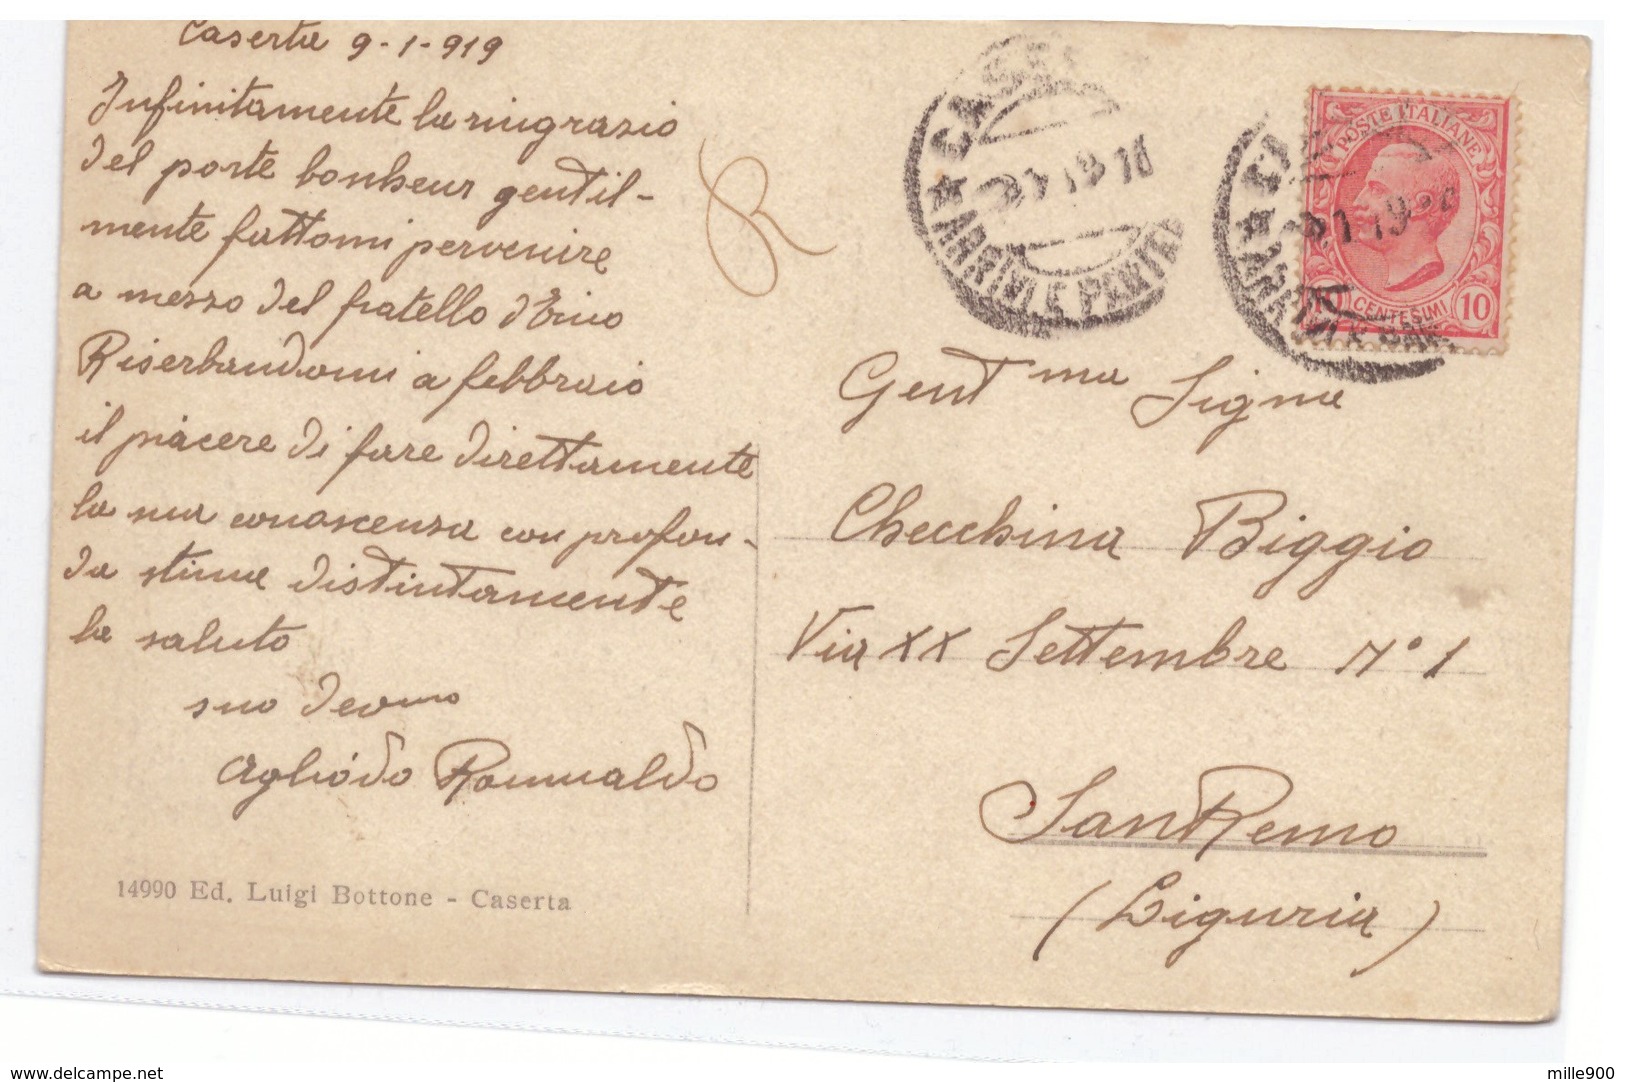 Caserta 9-1-919
Infinitamente la ringrazio
del porte bonheur gentil-
mente fattomi pervenire
a mezzo del fratello d'Erico
Riserbandomi a febbraio
il piacere di fare direttamente
la sua conoscenza con profon-
da stima distintamente
la saluto
suo devmo
Agliódo Romualdo
14990 Ed. Luigi Bottone - Caserta
POSTE ITALIANE
10 CENTESIMI 10
Gentma Signa
Checchina Biggio
Via XX Settembre N° 1
San Remo
(Liguria)
www.delcampe.net
mille900